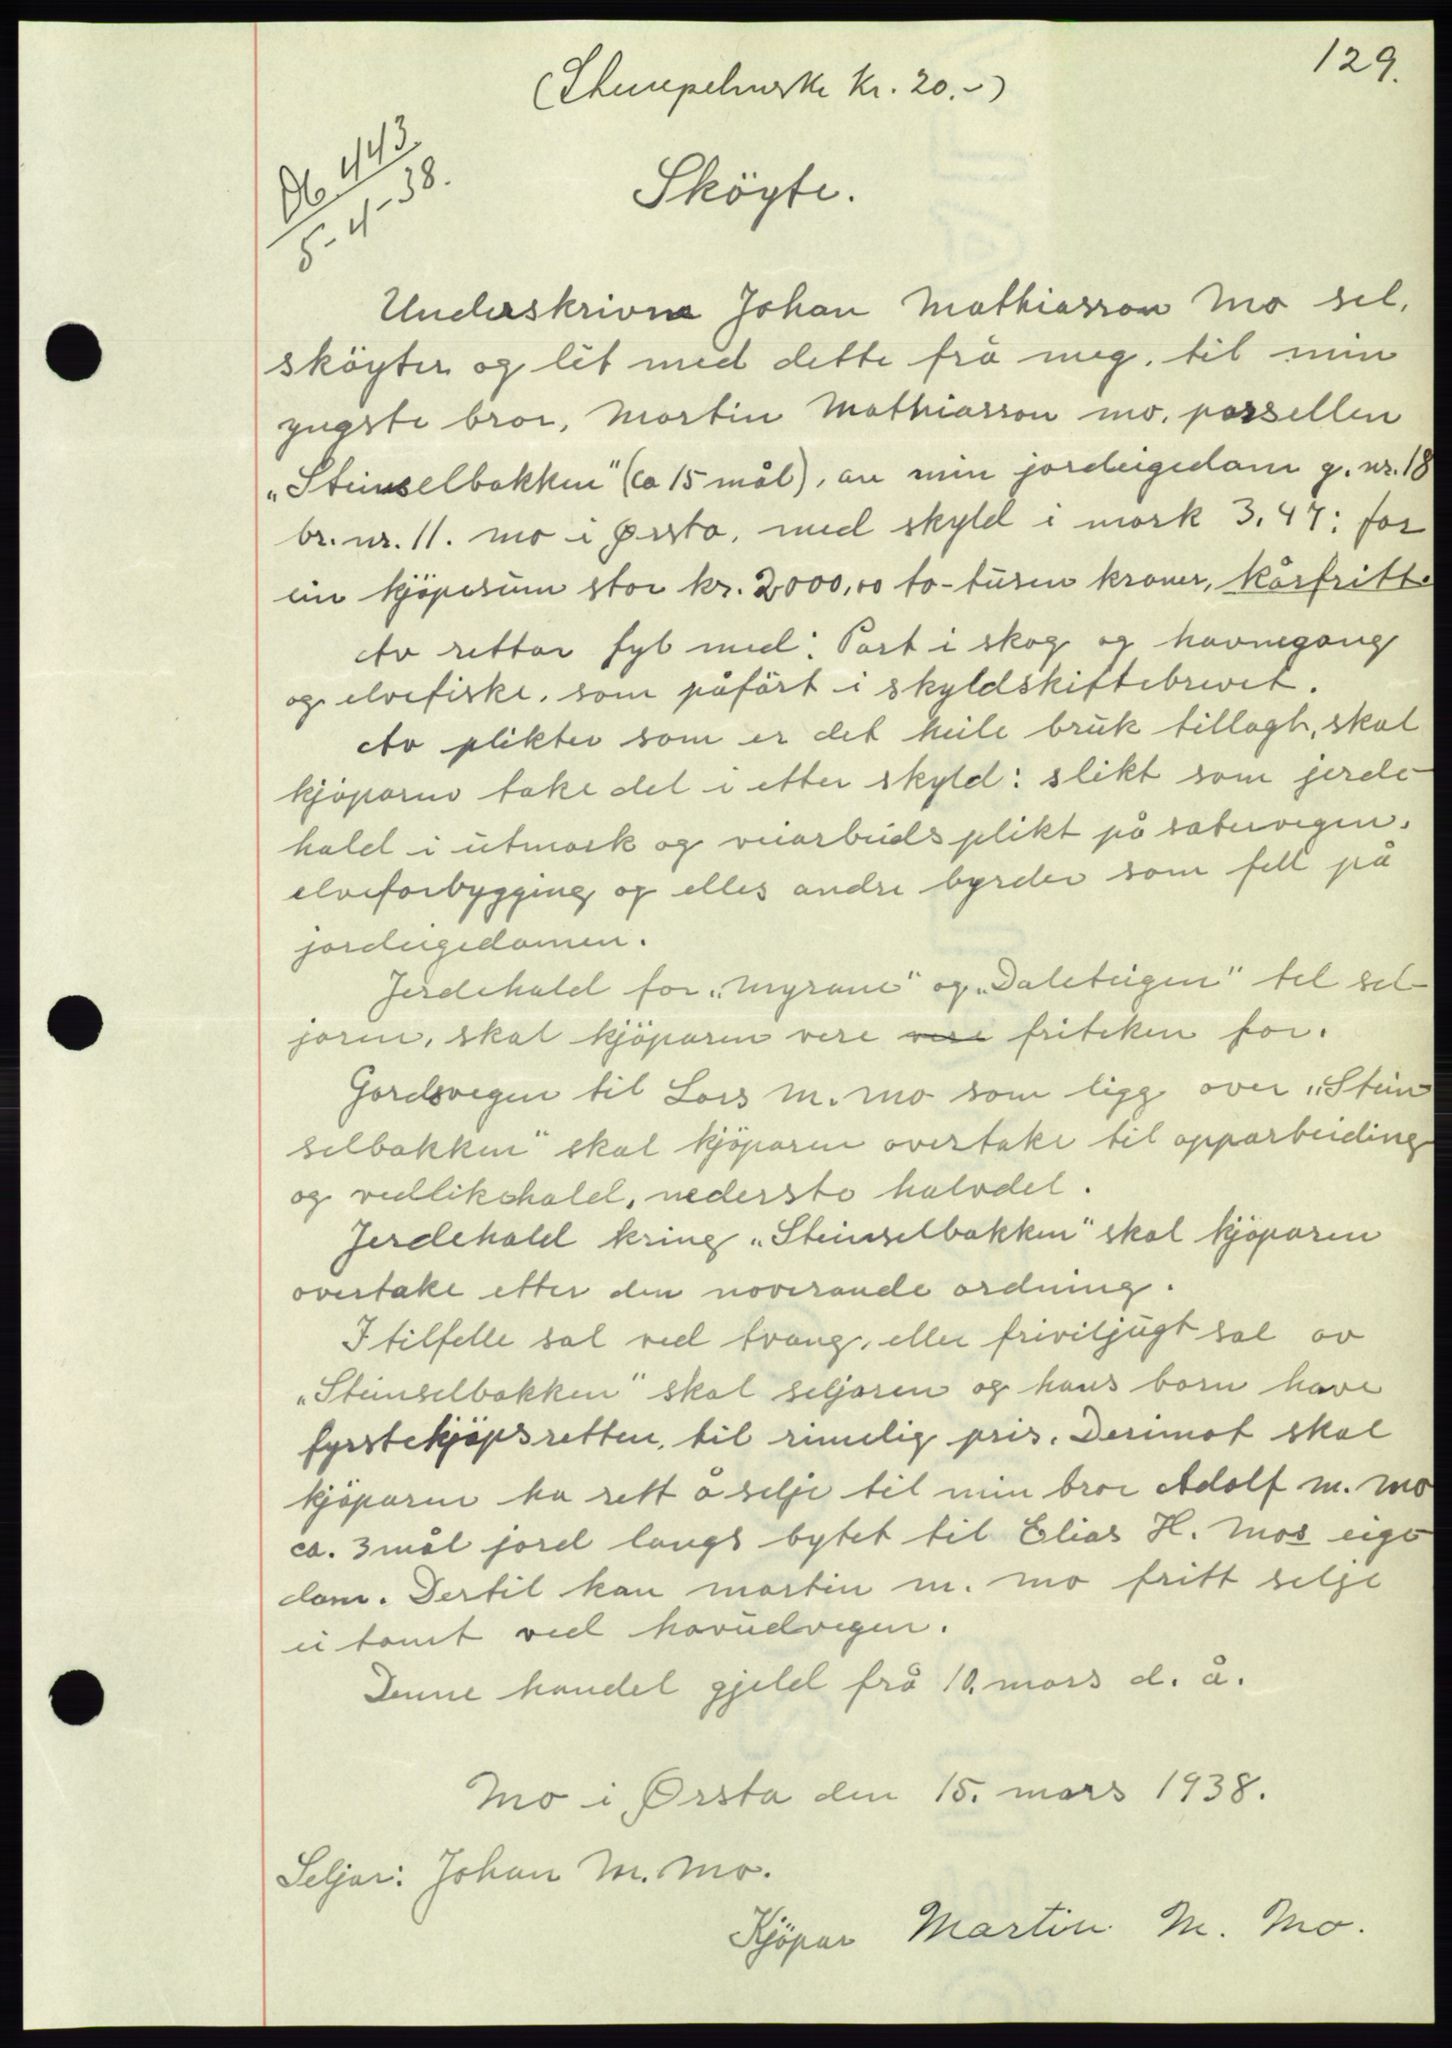 129.
(Stempelmerke kr. 20.-)
Db 443
5-4-38.
Sköyte.
Underskrivne Johan Mathiasson Mo sel,
sköyter og lèt med dette frå meg, til min
yngste bror, Martin Mathiasson Mo, parsellen
„Steinselbakken" (ca 15 mål), av min jordeigedom g. nr. 18
br. nr. 11. Mo i Ørsta, med skyld i mark 3,47: for
ein kjöpesum stor kr. 2000,00 to-tusen kroner, kårfritt.
Av rettar fyl med: Part i skog og havnegang
og elvefiske, som påfört i skyldskiftebrevet.
Av plikter som er det heile bruk tillagt, skal
kjöparen take del i etter skyld: slikt som jerde-
hald i utmark og veiarbeidsplikt på sætervegen,
elveforbygging og elles andre byrder som fell på
jordeigedomen.
Jerdehald for „Myrane" og „Daleteigen" til sel-
jaren, skal kjöparen vere vere friteken for.
Gardsvegen til Lars M. Mo som ligg over „Stein-
selbakken" skal kjöparen overtake til opparbeiding
og vedlikehald, nedersto halvdel.
Jerdehald kring „Steinselbakken" skal kjöparen
overtake etter den noverande ordning.
I tilfelle sal ved tvang, eller friviljugt sal av
„Steinselbakken" skal seljaren og hans born have
fyrstekjöpsretten, til rimelig pris. Derimot skal
kjöparen ha rett å selje til min bror Adolf M. Mo
ca. 3 mål jord langs bytet til Elias H. Mos eige-
dom. Dertil kan Martin M. Mo fritt selje
ei tomt ved hovudvegen.
Denne handel gjeld frå 10. mars d. å.
Mo i Ørsta den 15. mars 1938.
Seljar: Johan M. Mo.
Kjöpar Martin M. Mo.